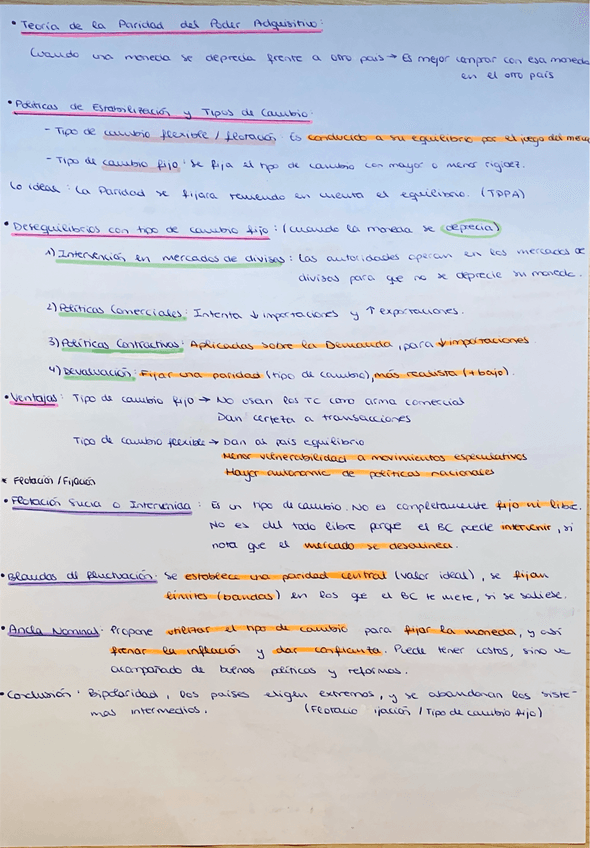 • Teoría de la Paridad del Poder Adquisitivo:
Cuando una moneda se deprecia frente a otro país → Es mejor comprar con esa moneda
en el otro país
• Políticas de Estabilización y Tipos de Cambio:
- Tipo de cambio flexible / flotación: Es conducido a su equilibrio por el juego del merc
- Tipo de cambio fijo: se fija el tipo de cambio con mayor o menor rigidez.
Lo ideal: La Paridad se fijara teniendo en cuenta el equilibrio. (TPPA)
• Desequilibrios con tipo de cambio fijo: (cuando la moneda se deprecia)
1) Intervención en mercados de divisas: Las autoridades operan en los mercados de
divisas para que no se deprecie su moneda.
2) Políticas Comerciales: Intenta ↓ importaciones y ↑ exportaciones.
3) Políticas Contractivas: Aplicadas sobre la Demanda, para ↓ importaciones.
4) Devaluación: Fijar una paridad (tipo de cambio), más realista (+ bajo).
• Ventajas: Tipo de cambio fijo → No usan los TC como arma comercial
Dan certeza a transacciones
Tipo de cambio flexible → Dan al país equilibrio
Menor vulnerabilidad a movimientos especulativos
Mayor autonomía de políticas nacionales
* Flotación / Fijación
• Flotación Sucia o Intervenida: Es un tipo de cambio. No es completamente fijo ni libre.
No es del todo libre porque el BC puede intervenir, si
nota que el mercado se desalinea.
• Bandas de fluctuación: Se establece una paridad central (valor ideal), se fijan
límites (bandas) en los que el BC te mete, si se saliese.
• Ancla Nominal: Propone utilizar el tipo de cambio para fijar la moneda, y así
frenar la inflación y dar confianza. Puede tener costos, sino va
acompañado de buenas políticas y reformas.
• Conclusión: Bipolaridad, los países eligen extremos, y se abandonan los siste-
mas intermedios. (Flotacio ijación / Tipo de cambio fijo)